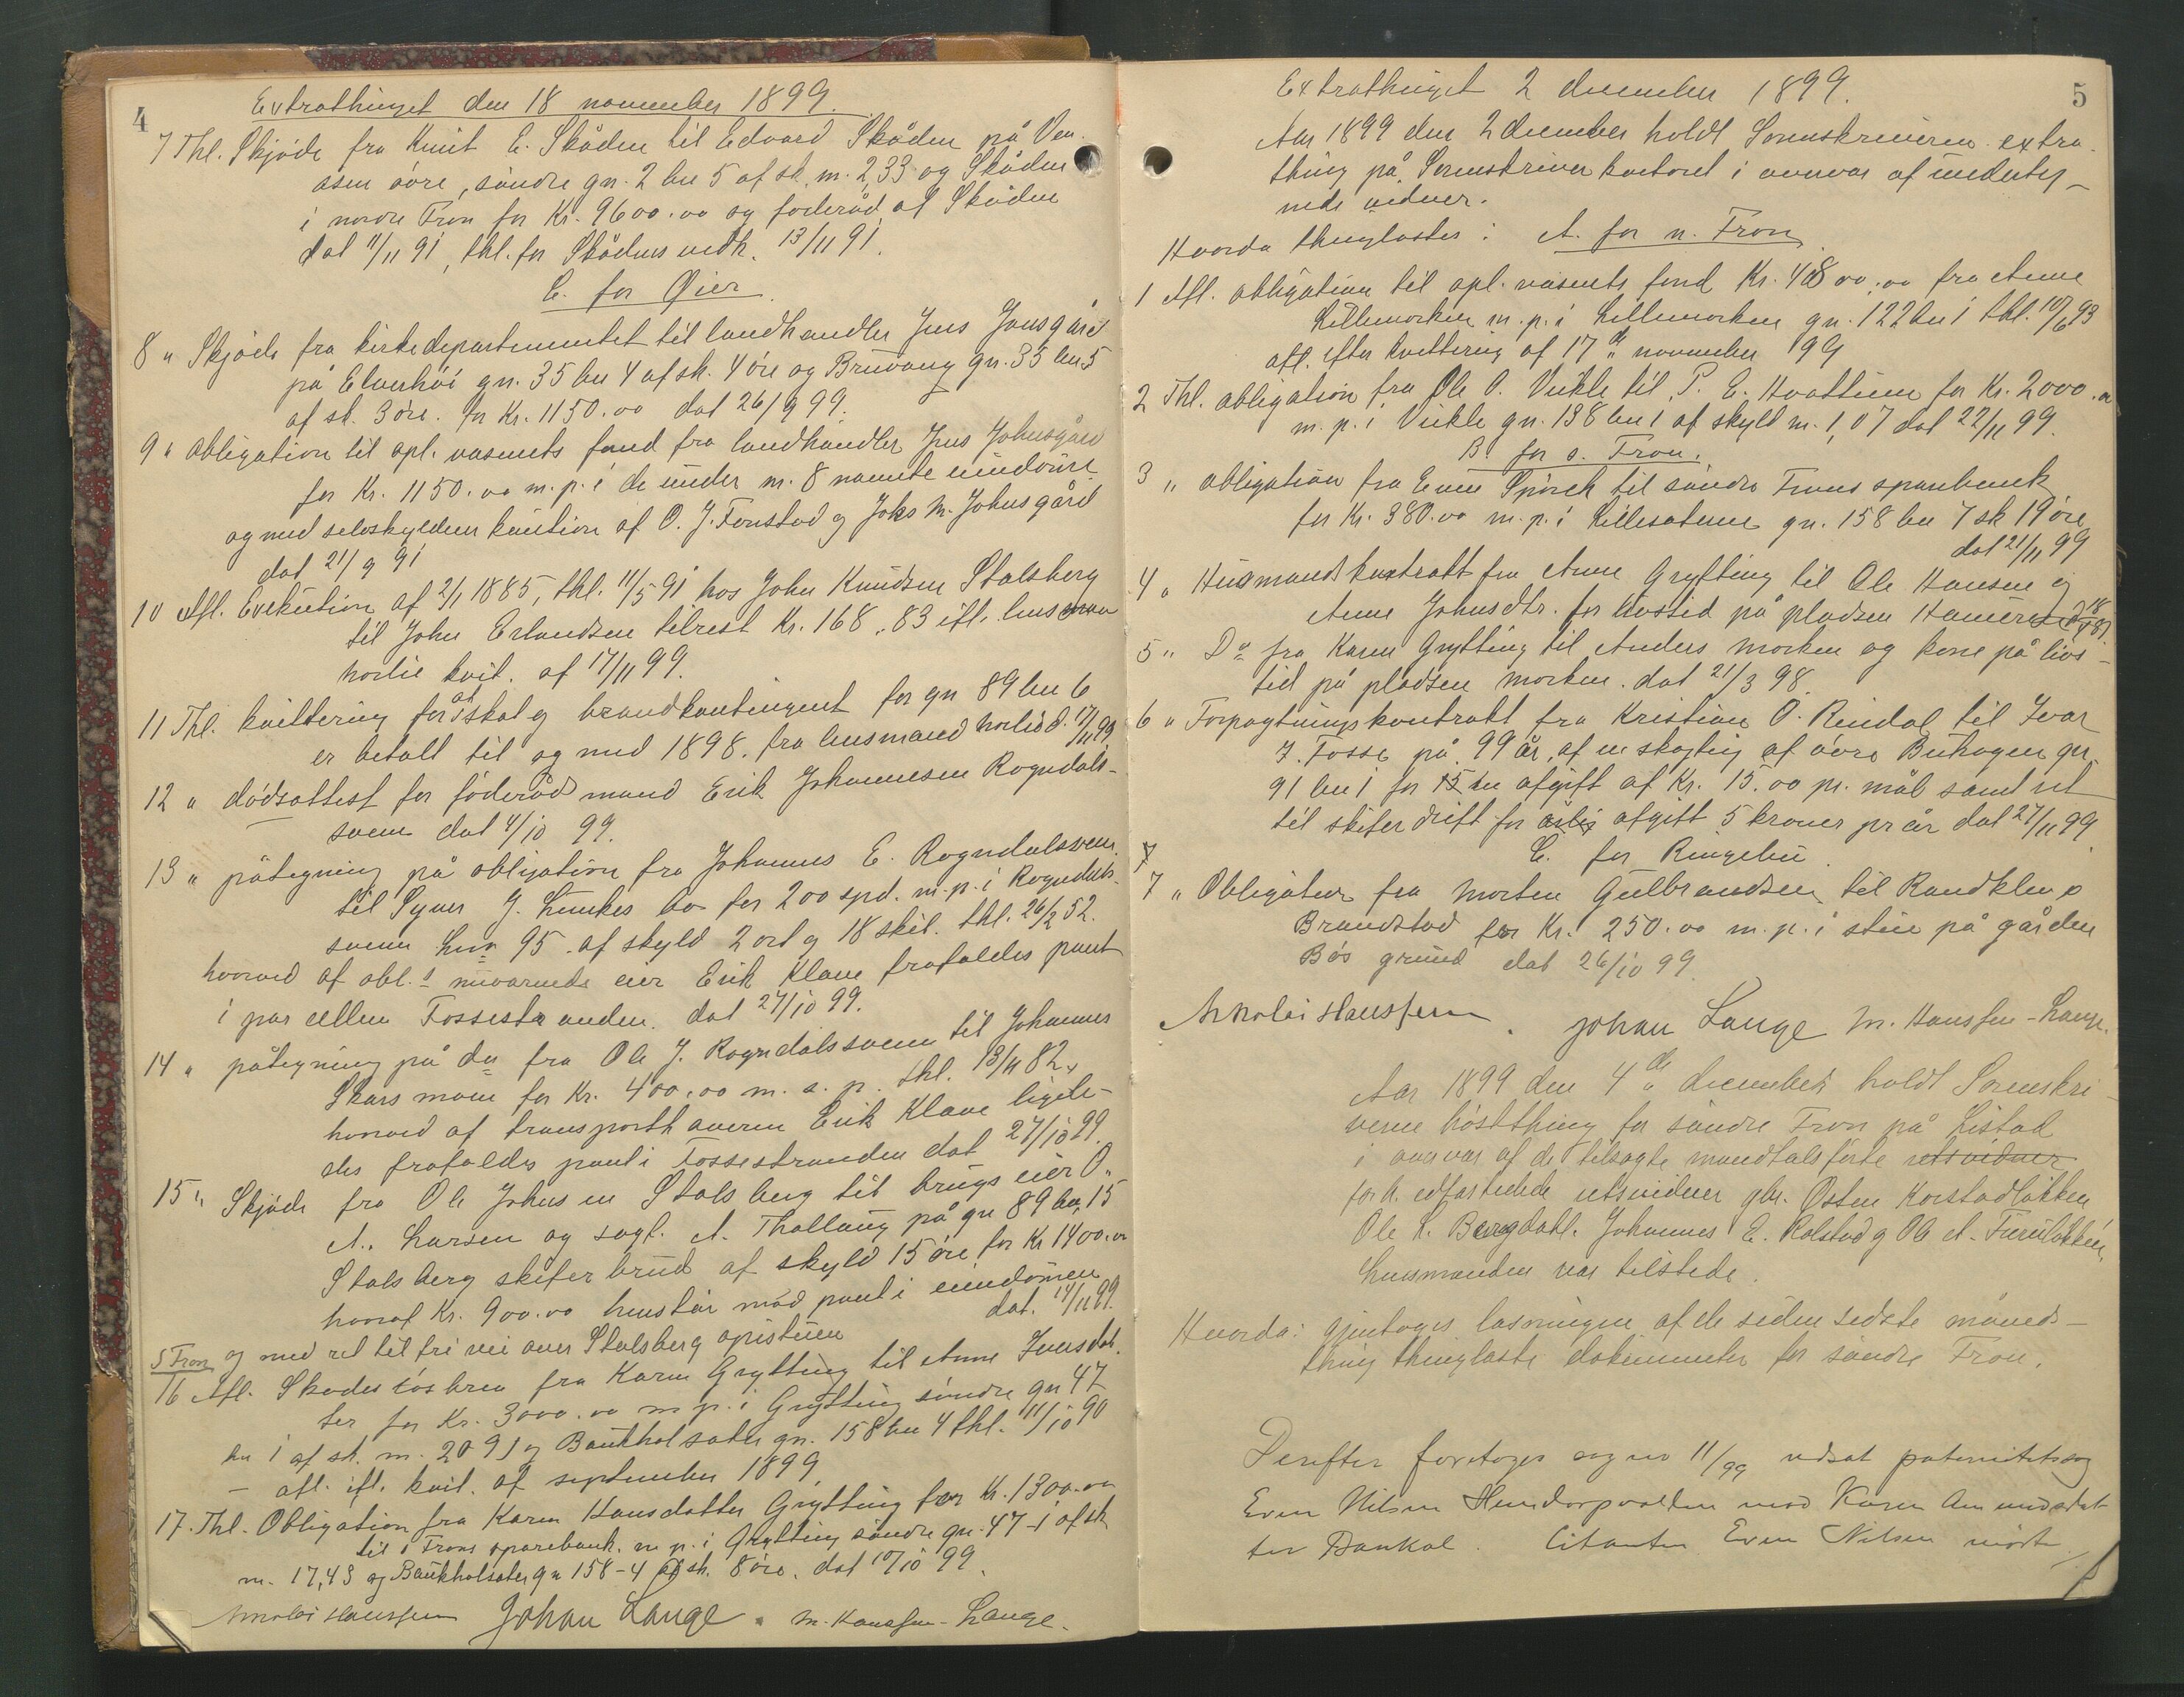 4
Extrathinget den 18 november 1899.
7 Thl. Skjöde fra Knut E. Skåden til Edvard Skåden på Ven-
åsen övre, söndre gn. 2 bn 5 af sk. m. 2,33 og Skåden
i nordre Fron for Kr. 9600.00 og föderåd af Skåden
dat 11/11 91, thl. for Skådens vedk. 13/11 91.
C. for Øier.
8 " Skjöde fra kirkedepartementet til landhandler Jens Jonsgård
på Elverhöi gn. 35 bn 4 af sk. 4 öre og Bruvang gn. 35 bn 5
af sk. 3 öre. for Kr. 1150.00 dat 26/9 99.
9 " Obligation til opl. væsenets fond fra landhandler Jens Johnsgård
for Kr. 1150.00 m. p. i de under n. 8 nævnte eiendomme
og med selvskyldner kaution af O. J. Fonstad og Johs M. Johnsgård
dat 21/9 91
10 Afl. Exekution af 2/1 1885, thl. 11/5 91 hos John Knudsen Stalsberg
til John Erlandsen tilrest Kr. 168.83 ifl. lensman
horlie kvit. af 17/11 99.
11 Thl. kvittering for at skat og brandkontingent for gn 89 bn 6
er betalt til og med 1898. fra lensmand horlie d. 17/11 99
12 " dödsattest for föderådmand Erik Johannesen Rogndals-
sveen dat 4/10 99.
13 " påtegning på obligation fra Johannes E. Rogndalsveen
til Syver J. Lunkes bo for 200 spd. m. p. i Rogndals-
sveen lnr 95 af skyld 2 ort og 18 skil. thl. 26/2 52.
hvorved af obl.s nuværende eier Erik Klave frafaldes pant
i parcellen Fossestranden. dat 27/10 99.
14 " påtegning på do fra Ole J. Rogndalssveen til Johannes
Skarsmoen for Kr. 400.00 m. s. p. thl. 13/11 82,
hvorved af transporthaveren Erik Klave ligele-
des frafaldes pant i Fossestranden dat 27/10 99.
15 " Skjöde fra Ole Johnsen Stalsberg til brugseier O.
A. Larsen og sagf. A. Thallaug på gn 89 bn 15
Stalsberg skiferbrud af skyld 15 öre for Kr 1400.00
hvoraf Kr. 900.00 henstår mod pant i eiendommen
dat. 14/11 99.
og med ret til fri vei over Stalsberg opistuen
S Fron
16 Afl. Skadeslösbrev fra Karen Grytting til Anne Iversdat-
ter for Kr. 3000.00 m p. i Grytting söndre gn 47
bn 1 af sk. m. 20 91 og Baukholsæter gn. 158 bn 4 thl. 11/10 90
- afl. ifl. kvit. af september 1899.
17. Thl. Obligation fra Karen Hansdatter Grytting for Kr. 1300.00
til s Frons sparebank. m p. i Grytting söndre gn. 47-1 af sk
m. 17,43 og Baukholsæter gn 158-4 af sk. 8 öre. dat 10/10 99.
Nikolai Hanssen Johan Lange. M. Hanssen-Lange.
5
Extrathinget 2 december 1899.
Aar 1899 den 2 december holdt Sorenskriveren extra-
thing på Sorenskriverkontoret i overvær af underteg-
nede vidner.
Hvorda thinglæstes: A. for n. Fron.
1 Afl. obligation til opl. væsenets fond Kr. 4800.00 fra Anne
Lillemorken m. p. i Lillemorken gn. 122 bn 1 thl. 10/6 93
afl. efter kvittering af 17de november 99
2 Thl. obligation fra Ole O. Vikle til P. E. Hvattum for Kr. 2000.00
m. p. i Vikle gn. 138 bn 1 af skyld m. 1,07 dat 22/11 99.
B. for s. Fron.
3 " obligation fra Even Spörck til söndre Frons sparebank
for Kr. 380.00 m. p. i Lillesæteren gn. 158 bn 7 sk 19 öre
dat 21/11 99
4 " Husmandskontrakt fra Anne Grytting til Ole Hansen og
Anne Johnsdtr. for livstid på pladsen Hameren d. 18/4 87.
5 " Do fra Karen Grytting til Anders Morken og kone på livs-
tid på pladsen Morken. dat 21/3 98.
6 " Forpagtningskontrakt fra Kristian O. Rindal til Ivar
J. Fosse på 99 år, af en skogteig af övre Buhagen gn.
91 bn 1 for en afgift af Kr. 15.00 pr. mål samt ret
til skiferdrift for årlig afgift 5 kroner pr år dat 27/11 99.
C. for Ringebu.
7 " Obligation fra Morten Gulbrandsen til Randklev
Brandstad for Kr. 250.00 m. p. i stue på gården
Bös grund dat 26/10 99.
Nikolai Hanssen. Johan Lange M. Hanssen-Lange.
Aar 1899 den 4de december holdt Sorenskri-
veren höstthing for söndre Fron på Listad
i overvær af de tilsagte mandtalsförte retsvidner
forh. edfæstede retsvidner gbr. Østen Korstadlökken
Ole L. Bergdahl. Johannes E. Kolstad og Ole A. Furulökken.
Lensmanden var tilstede.
Hvorda: gjentoges læsningen af de siden sidste måneds-
thing thinglæste dokumenter for söndre Fron.
Derefter foretoges sag no 11/99 udsat paternitetssag
Even Nilsen Hundorpvolden mod Karen Amundsdat-
ter Dankol. Citanten Even Nilsen mödte